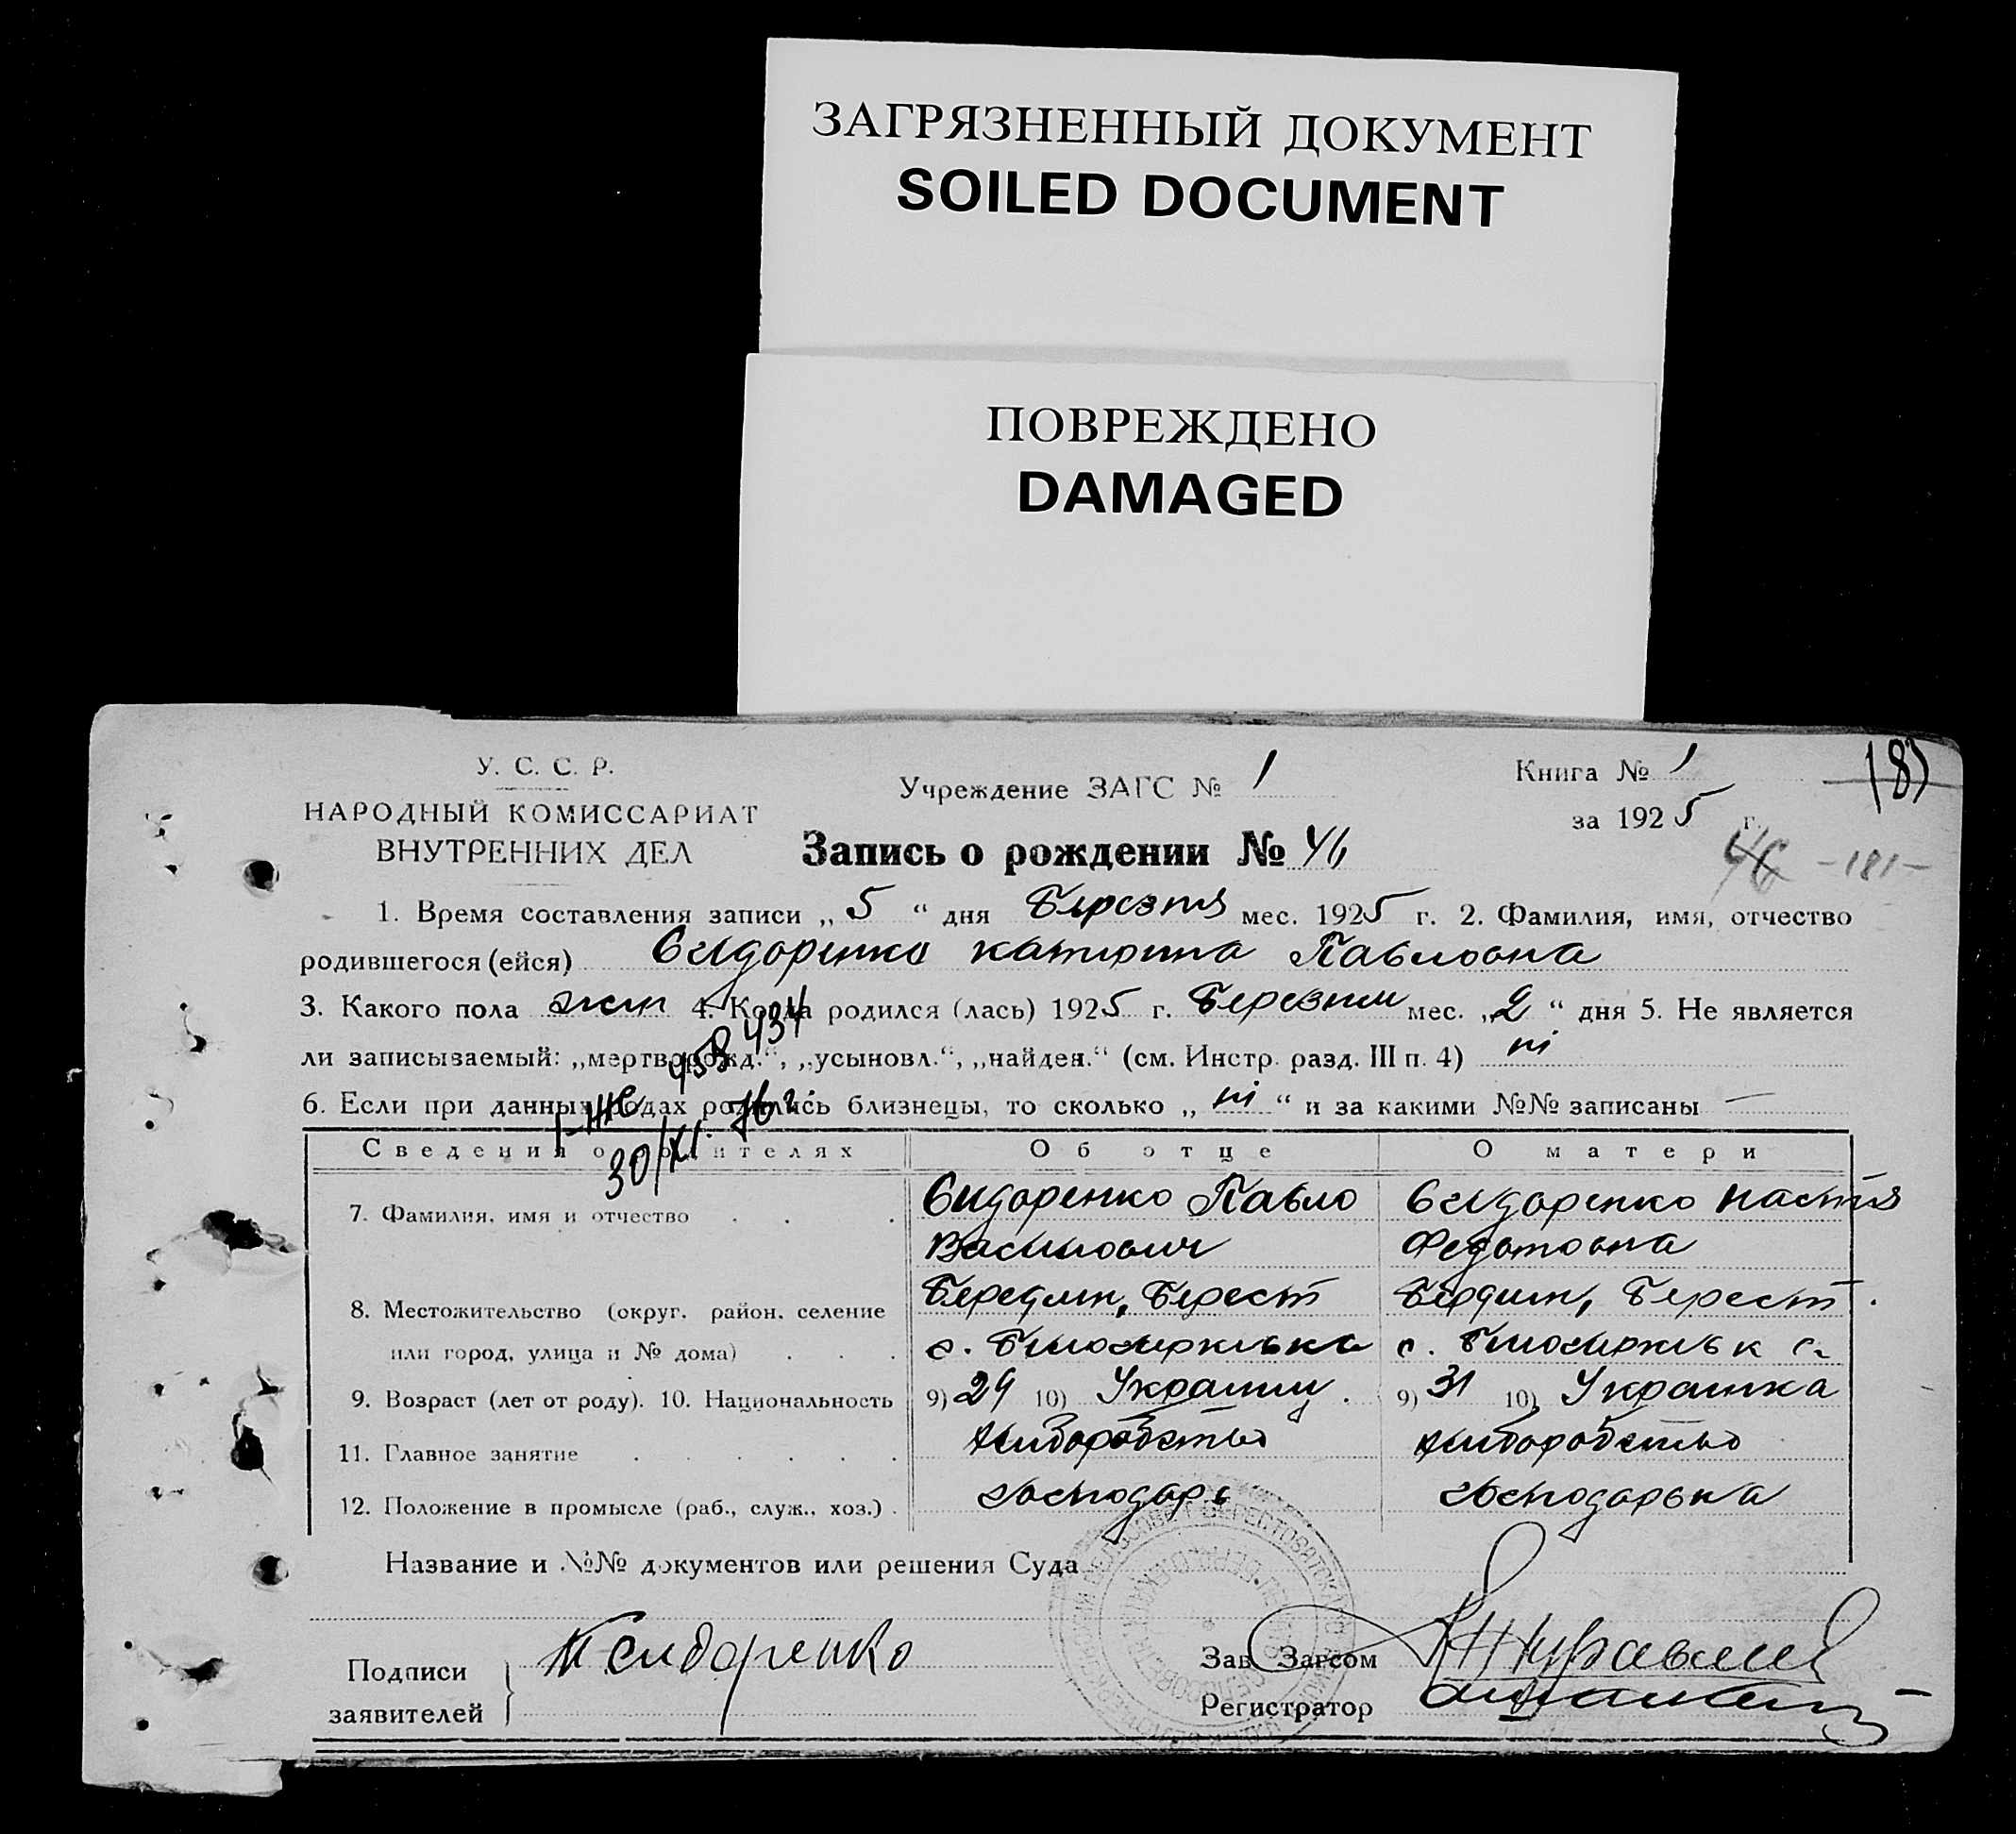 ЗАГРЯЗНЕННЫЙ ДОКУМЕНТ
SOILED DOCUMENT
ПОВРЕЖДЕНО
DAMAGED
У. С. С. Р.
НАРОДНЫЙ КОМИССАРИАТ
ВНУТРЕННИХ ДЕЛ
Учреждение ЗАГС № 1
Книга № 1
за 1925 г.
Запись о рождении № 46
46 -181-
1. Время составления записи „ 5 “ дня Березня мес. 1925 г. 2. Фамилия, имя, отчество
родившегося (ейся) Сидоренко Катирина Павловна
3. Какого пола жен 4. Когда родился (лась) 1925 г. Березни мес. „ 2 “ дня 5. Не является
ли записываемый: „мертворожд.“, „усыновл.“, „найден.“ (см. Инстр. разд. III п. 4) ні
6. Если при данных родах родились близнецы, то сколько „ ні “ и за какими №№ записаны —
30/XI. 76 г.
Сведения о родителях Об отце О матери
7. Фамилия, имя и отчество Сидоренко Павло Сидоренко Настя
Василович Федотовна
8. Местожительство (округ. район. селение Бердянськ, Берест
или город, улица и № дома)
9. Возраст (лет от роду). 10. Национальность 9) 29 10) Украинц. 9) 31 10) Украинка
11. Главное занятие хліборобство хліборобство
12. Положение в промысле (раб., служ., хоз.) господарь господарька
Название и №№ документов или решения Суда
Подписи заявителей П Сидоренко
Зав Загсом Журавлев
Регистратор